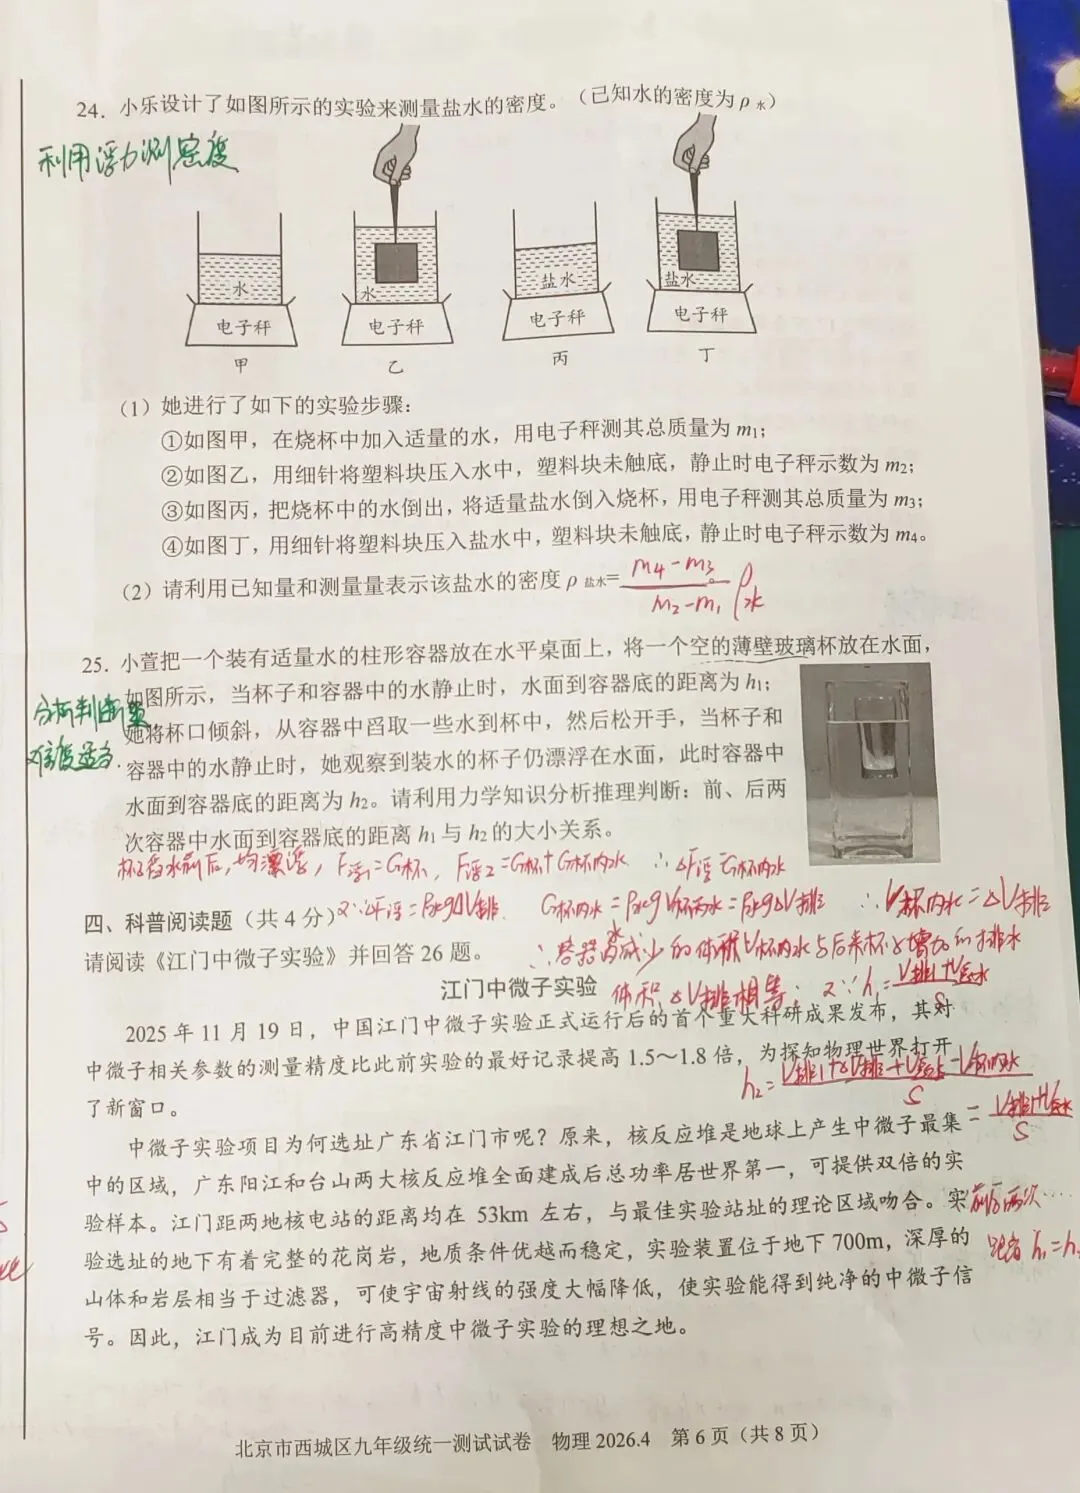 24. 小乐设计了如图所示的实验来测量盐水的密度。（已知水的密度为ρ水）
利用浮力测密度
水
水
盐水
盐水
电子秤
电子秤
电子秤
电子秤
甲
乙
丙
丁
（1）她进行了如下的实验步骤：
①如图甲，在烧杯中加入适量的水，用电子秤测其总质量为 m₁；
②如图乙，用细针将塑料块压入水中，塑料块未触底，静止时电子秤示数为 m₂；
③如图丙，把烧杯中的水倒出，将适量盐水倒入烧杯，用电子秤测其总质量为 m₃；
④如图丁，用细针将塑料块压入盐水中，塑料块未触底，静止时电子秤示数为 m₄。
（2）请利用已知量和测量量表示该盐水的密度ρ盐水=
m₄-m₃
m₂-m₁
ρ水
25. 小萱把一个装有适量水的柱形容器放在水平桌面上，将一个空的薄壁玻璃杯放在水面，
如图所示，当杯子和容器中的水静止时，水面到容器底的距离为 h₁；
分析判断
她将杯口倾斜，从容器中舀取一些水到杯中，然后松开手，当杯子和
难度适当.
容器中的水静止时，她观察到装水的杯子仍漂浮在水面，此时容器中
水面到容器底的距离为 h₂。请利用力学知识分析推理判断：前、后两
次容器中水面到容器底的距离 h₁ 与 h₂ 的大小关系。
杯子舀水前后，均漂浮，F浮₁=G杯，F浮₂=G杯+G杯内水 ∴ΔF浮=G杯内水
四、科普阅读题（共 4 分）
又∵ΔF浮=ρ水gΔV排 G杯内水=ρ水gV杯内水=ρ水gΔV排 ∴V杯内水=ΔV排
请阅读《江门中微子实验》并回答 26 题。
∴容器内减少的体积V杯内水与后来杯子增加的排水
江门中微子实验
体积ΔV排相等； 又∵h₁=
V排1+V容水
S
2025 年 11 月 19 日，中国江门中微子实验正式运行后的首个重大科研成果发布，其对
中微子相关参数的测量精度比此前实验的最好记录提高 1.5～1.8 倍，为探知物理世界打开
了新窗口。
h₂=
V排1+ΔV排+V容水-V杯内水
S
=
V排1+V容水
S
中微子实验项目为何选址广东省江门市呢？原来，核反应堆是地球上产生中微子最集
中的区域，广东阳江和台山两大核反应堆全面建成后总功率居世界第一，可提供双倍的实
验样本。江门距两地核电站的距离均在 53km 左右，与最佳实验站址的理论区域吻合。实
前后两次
验选址的地下有着完整的花岗岩，地质条件优越而稳定，实验装置位于地下 700m，深厚的
距离 h₁=h
山体和岩层相当于过滤器，可使宇宙射线的强度大幅降低，使实验能得到纯净的中微子信
号。因此，江门成为目前进行高精度中微子实验的理想之地。
北京市西城区九年级统一测试试卷 物理 2026.4 第 6 页（共 8 页）